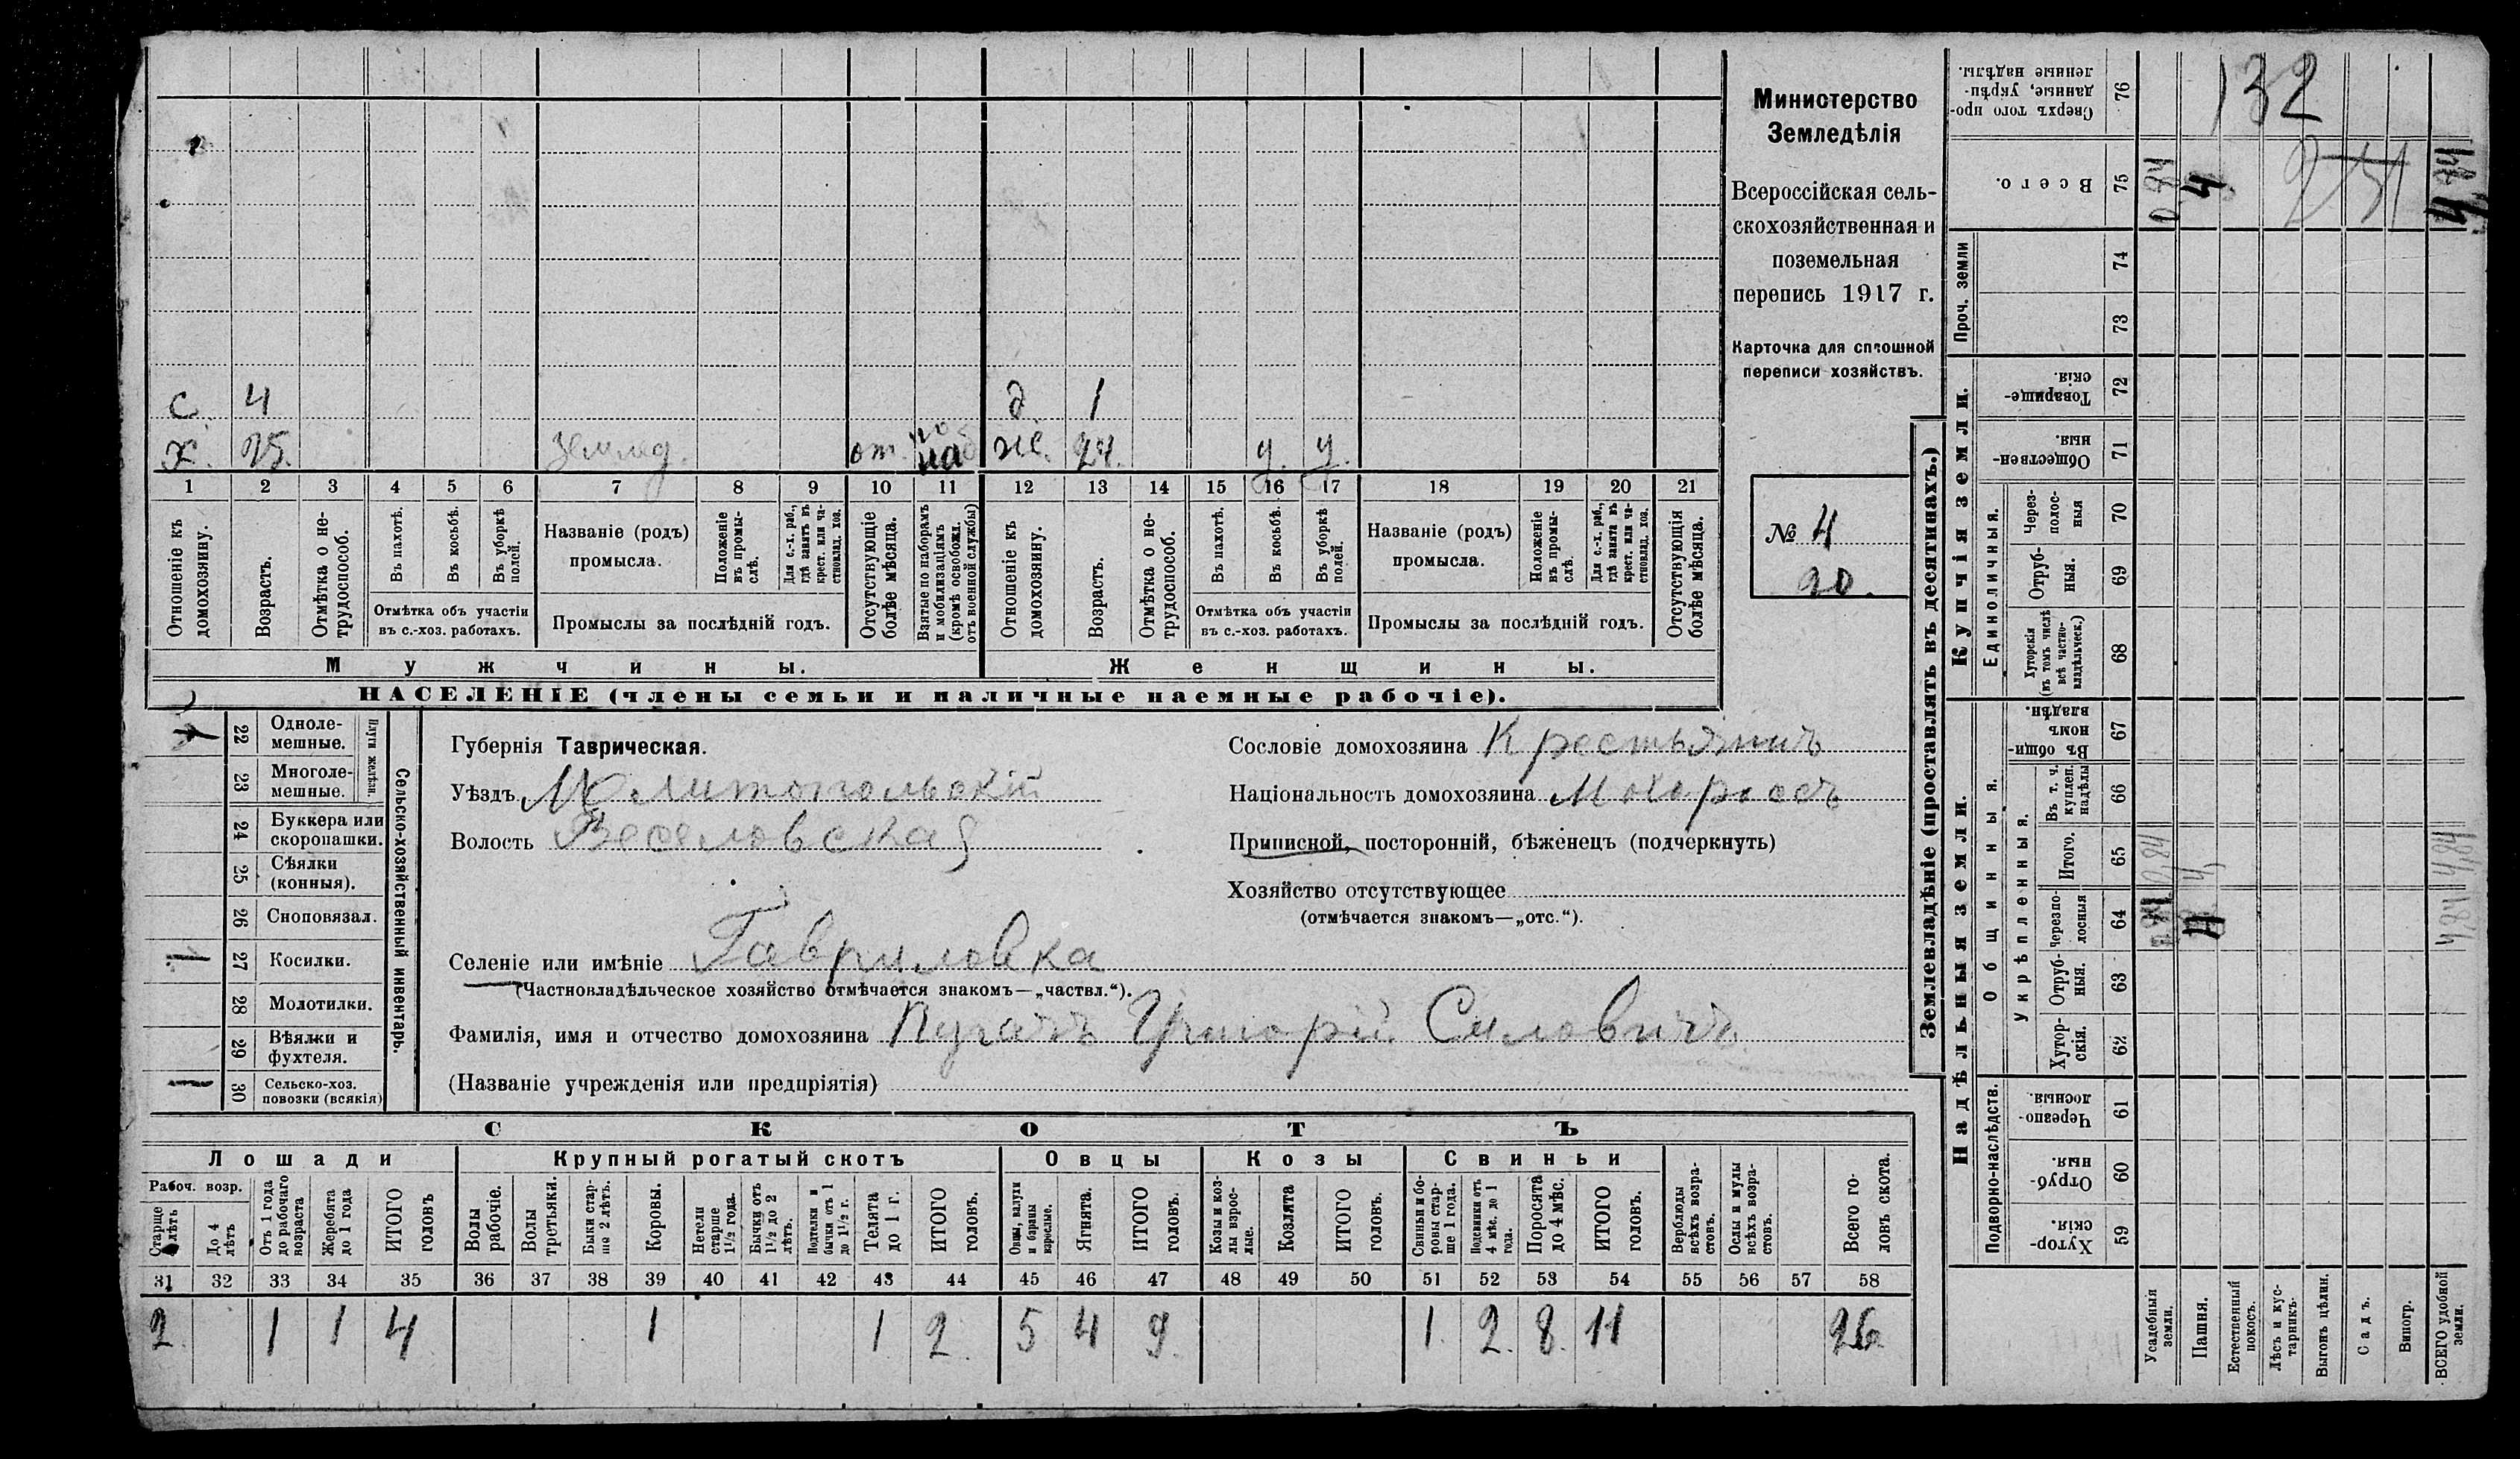 с. 4 д 1
х. 25. землед. от. на ж. 24. у. у.
1 2 3 4 5 6 7 8 9 10 11 12 13 14 15 16 17 18 19 20 21
Отношеніе къ домохозяину.
Возрастъ.
Отмѣтка о не-
трудоспособ.
Въ пахотѣ.
Въ косьбѣ.
Въ уборкѣ полей.
Отмѣтка объ участіи
въ с.-хоз. работахъ.
Названіе (родъ)
промысла.
Положеніе
въ промы-
слѣ.
Для с.-х. раб.,
гдѣ занятъ въ
крест. или ча-
стновлад. хоз.
Промыслы за послѣдній годъ.
Отсутствующіе
болѣе мѣсяца.
Взятые по наборамъ
и мобилизаціямъ
(кромѣ освобожд.
отъ военной службы)
Отношеніе къ
домохозяину.
Возрастъ.
Отмѣтка о не-
трудоспособ.
Въ пахотѣ.
Въ косьбѣ.
Въ уборкѣ полей.
Отмѣтка объ участіи
въ с.-хоз. работахъ.
Названіе (родъ)
промысла.
Положеніе
въ промы-
слѣ.
Для с.-х. раб.,
гдѣ занятъ въ
крест. или ча-
стновлад. хоз.
Промыслы за послѣдній годъ.
Отсутствующія
болѣе мѣсяца.
Мужчины. Женщины.
НАСЕЛЕНІЕ (члены семьи и наличные наемные рабочіе).
Министерство
Земледѣлія
Всероссійская сель-
скохозяйственная и
поземельная
перепись 1917 г.
Карточка для сплошной
переписи хозяйствъ.
№ 4
20.
22 Одноле-
мешные.
23 Многоле-
мешные.
Плуги желѣзн.
24 Буккера или
скоропашки.
25 Сѣялки
(конныя).
26 Сноповязал.
1 27 Косилки.
28 Молотилки.
29 Вѣялки и
фухтеля.
1 30 Сельско-хоз.
повозки (всякія)
Сельско-хозяйственный инвентарь.
Губернія Таврическая.
Уѣздъ Мелитопольскій
Волость Веселовская
Селеніе или имѣніе Гавриловка
(Частновладѣльческое хозяйство отмѣчается знакомъ—„частвл.“).
Фамилія, имя и отчество домохозяина Пугачъ Григорій Силовичъ
(Названіе учрежденія или предпріятія)
Сословіе домохозяина Крестьянинъ
Національность домохозяина Малороссъ
Приписной, посторонній, бѣженецъ (подчеркнуть)
Хозяйство отсутствующее
(отмѣчается знакомъ—„отс.“).
СКОТЪ
Лошади Крупный рогатый скотъ Овцы Козы Свиньи
Рабоч. возр.
Старше 4 лѣтъ
До 4 лѣтъ
Отъ 1 года
до рабочаго
возраста
Жеребята
до 1 года
ИТОГО
головъ
Волы
рабочіе.
Волы
третьяки.
Быки стар-
ше 2 лѣтъ.
Коровы.
Нетели
старше
1½ года.
Бычки отъ
1½ до 2
лѣтъ.
Подтелки и
бычки отъ 1
до 1½ г.
Телята
до 1 г.
ИТОГО
головъ.
Овцы, валухи
и бараны
взрослые.
Ягнята.
ИТОГО
головъ.
Козы и коз-
лы взрос-
лые.
Козлята
ИТОГО
головъ.
Свиньи и бо-
ровы стар-
ше 1 года.
Подсвинки отъ
4 мѣс. до 1
года.
Поросята
до 4 мѣс.
ИТОГО
головъ.
Верблюды
всѣхъ возра-
стовъ.
Ослы и мулы
всѣхъ возра-
стовъ.
Всего го-
ловъ скота.
31 32 33 34 35 36 37 38 39 40 41 42 43 44 45 46 47 48 49 50 51 52 53 54 55 56 57 58
2 1 1 4 1 1 2 5 4 9 1 2 8 11 26
Землевладѣніе (проставлять въ десятинахъ.)
Купчія земли.
Надѣльныя земли.
Сверхъ того про-
данные, укрѣп-
ленные надѣлы.
76
132
Всего.
75
0,84
4
251
4,84
Проч. земли
74
73
Товарище-
скія.
72
Обществен-
ныя.
71
Единоличныя.
Через-
полос-
ныя
70
Отруб-
ныя.
69
Хуторскія
(въ томъ числѣ
всѣ частно-
владѣльческ.)
68
Общинныя.
Въ общи-
номъ
владѣн.
67
Укрѣпленныя.
Въ т. ч.
куплен.
надѣлы
66
Итого.
65
0,84
4
4,84
Черезпо-
лосныя
64
0,84
4
4,84
Отруб-
ныя.
63
Хутор-
скія.
62
Подворно-наслѣдств.
Черезпо-
лосныя.
61
Отруб-
ныя.
60
Хутор-
скія.
59
Усадебныя
земли.
Пашня.
Естественный
покосъ.
Лѣсъ и кус-
тарникъ.
Выгонъ цѣлин.
Садъ.
Виногр.
ВСЕГО удобной
земли.